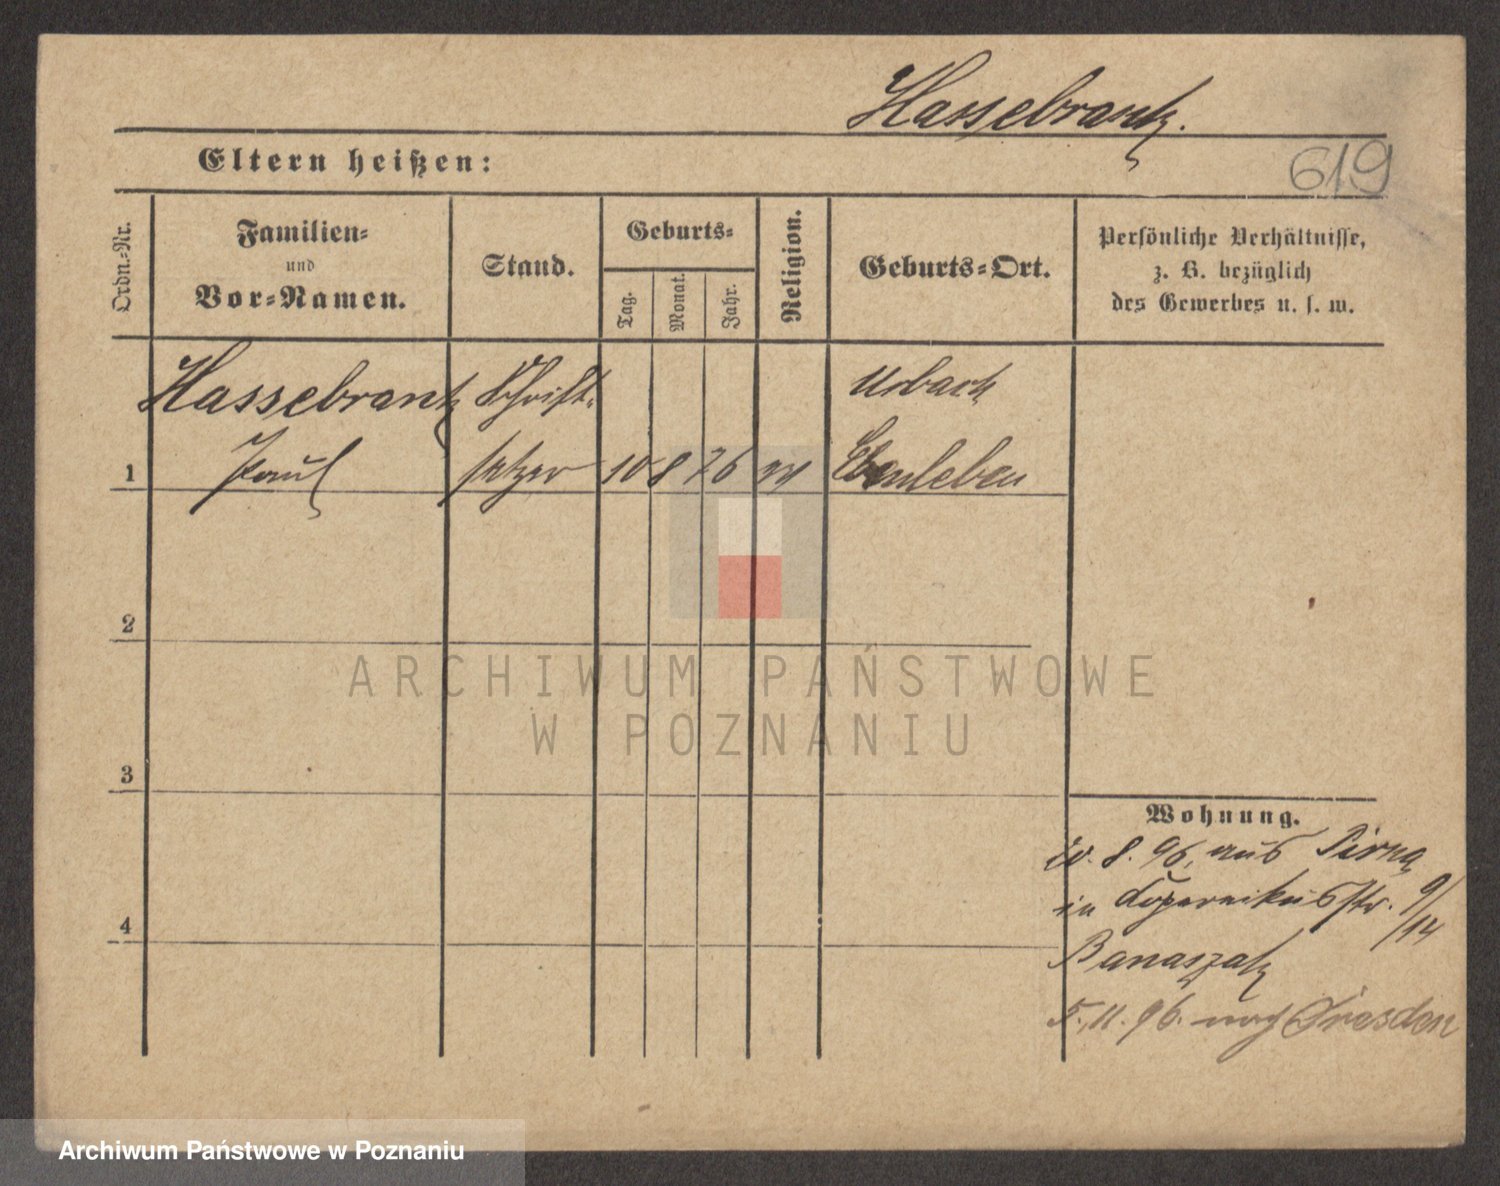 Hassebrank.
Eltern heißen:
619
Ordn.-Nr.
Familien-
und
Vor-Namen.
Stand.
Geburts-
Tag.
Monat.
Jahr.
Religion.
Geburts-Ort.
Persönliche Verhältnisse,
z. B. bezüglich
des Gewerbes u. s. w.
Hassebrank Schrift- Urbach
1 Paul setzer 10 8 76 ev
2
3
4
Wohnung.
8. 96. aus Pirna
in Kopernikusstr. 9/14
Banaszak
5. 11. 96. nach Dresden
ARCHIWUM PAŃSTWOWE
W POZNANIU
Archiwum Państwowe w Poznaniu